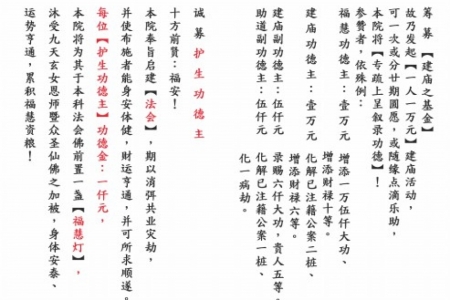 筹募【建庙之基金】
故乃发起【一人一万元】建庙活动，
可一次或分廿期圆愿，或随缘点滴乐助，
本院将【专疏上呈叙录功德】！
参赞者，依殊例：
福慧功德主：壹万元 增添一万伍仟大功、
增添财禄十等。
建庙功德主：壹万元 化解已注籍公案二桩、
增添财禄六等。
建庙副功德主：伍仟元 录赐六仟大功，贵人五等。
助道副功德主：伍仟元 化解已注籍公案一桩、
化一病劫。
诚募护生功德主
十方前贤：福安！
本院奉旨启建【法会】，期以消弭共业灾劫，
并使布施者能身安体健，财运亨通，并可所求顺遂。
每位【护生功德主】功德金：一仟元，
本院将为其于本科法会佛前置一盏【福慧灯】，
沐受九天玄女恩师暨众圣仙佛之加被，身体安泰、
运势亨通，累积福慧资粮！